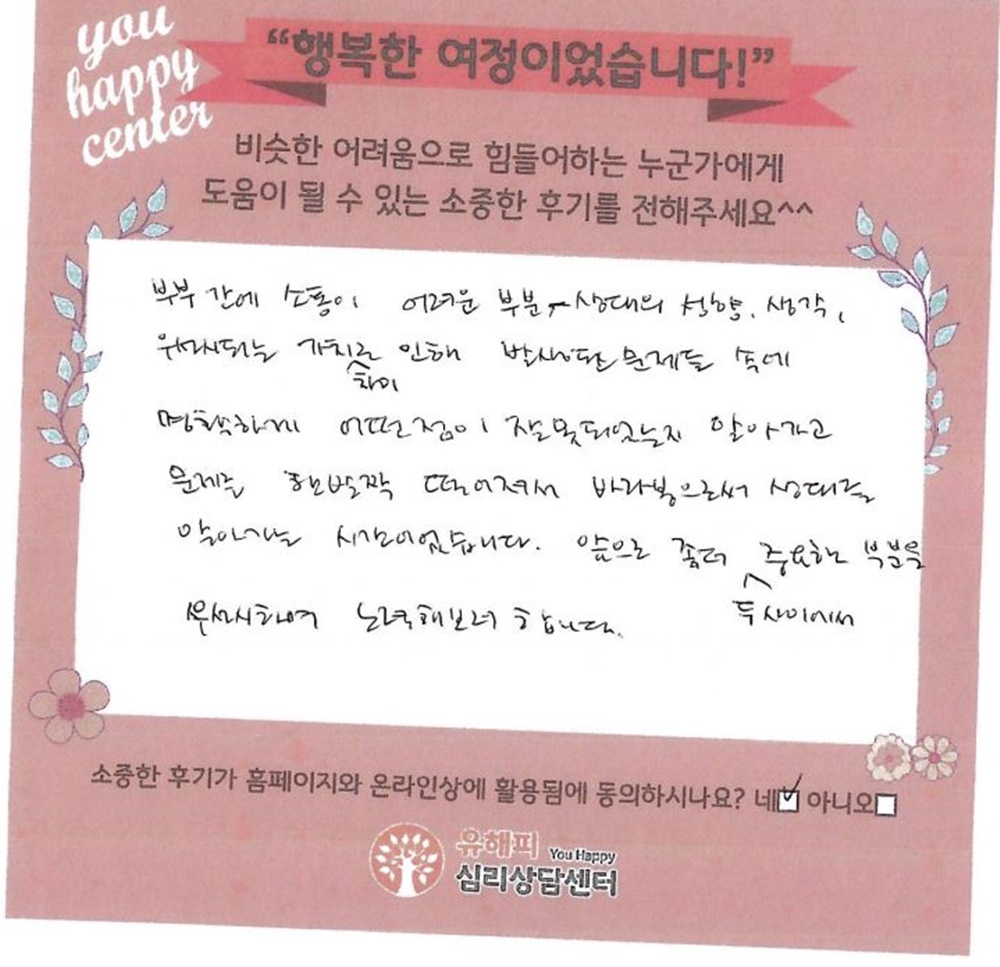 you
happy
center
“행복한 여정이었습니다!”
비슷한 어려움으로 힘들어하는 누군가에게
도움이 될 수 있는 소중한 후기를 전해주세요^^
부부 간에 소통이 어려운 부분, 상대의 성향, 생각,
우선시되는 가치로 인해 발생된 문제들 속에
차이
명확하게 어떤점이 잘못되었는지 알아가고
문제를 한발짝 떨어져서 바라봄으로써 상대를
알아가는 시간이었습니다. 앞으로 좀더 중요한 부분을
두 사이에서
우선시하여 노력해보려 합니다.
소중한 후기가 홈페이지와 온라인상에 활용됨에 동의하시나요? 네 아니오
유해피 You Happy
심리상담센터